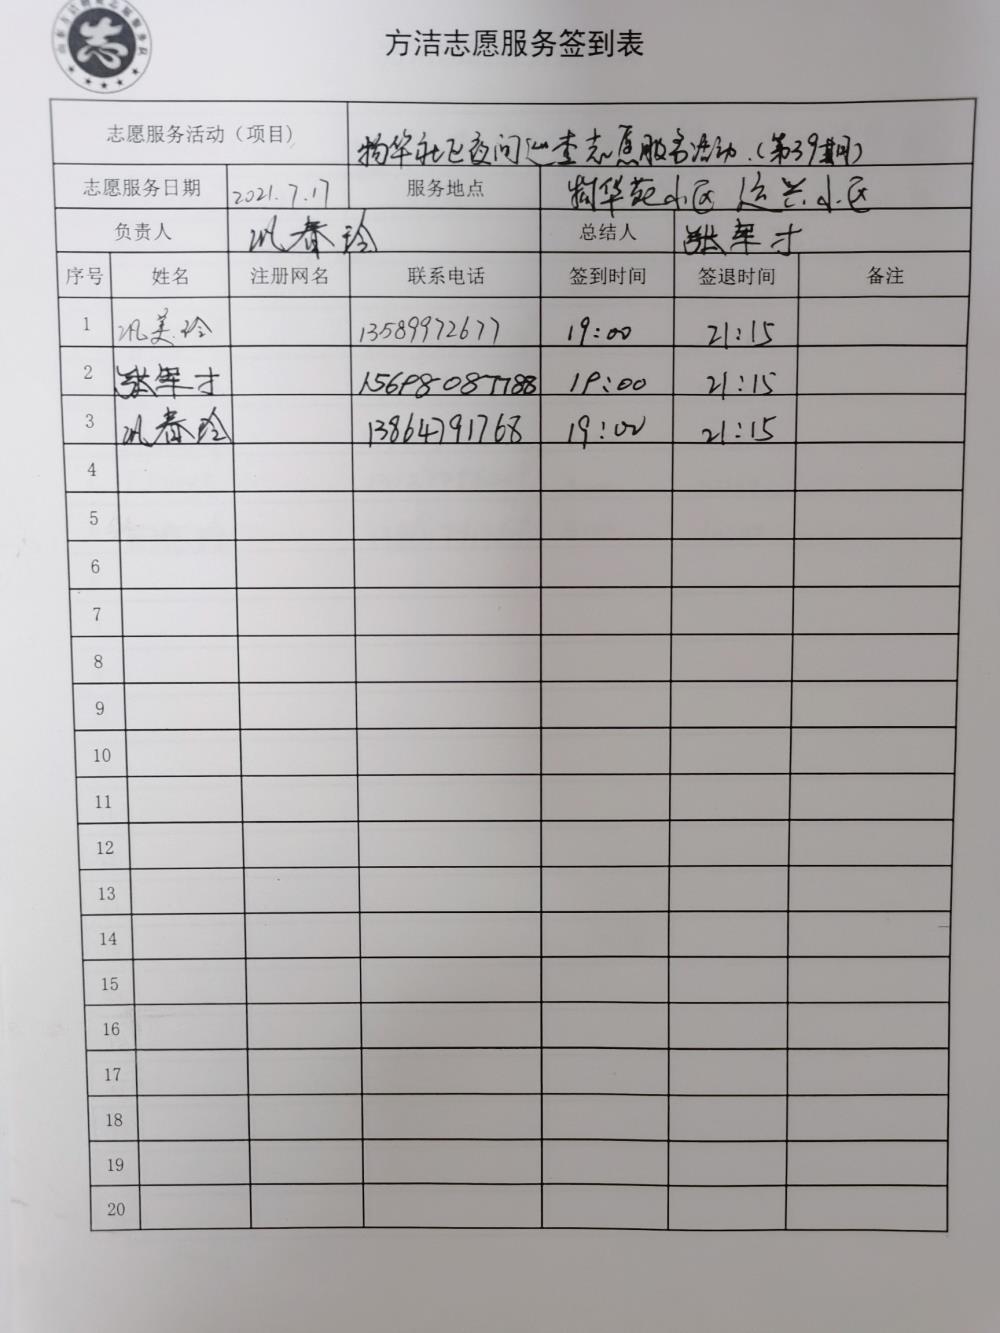 志
方洁志愿服务签到表
志愿服务活动（项目） 物华社区夜间巡查志愿服务活动.(第39期)
志愿服务日期 2021.7.17 服务地点 物华苑小区 运兴小区
负责人 巩春玲 总结人 张军才
序号 姓名 注册网名 联系电话 签到时间 签退时间 备注
1 巩美玲 13589972677 19:00 21:15
2 张军才 15698087788 19:00 21:15
3 巩春玲 13864791768 19:00 21:15
4
5
6
7
8
9
10
11
12
13
14
15
16
17
18
19
20